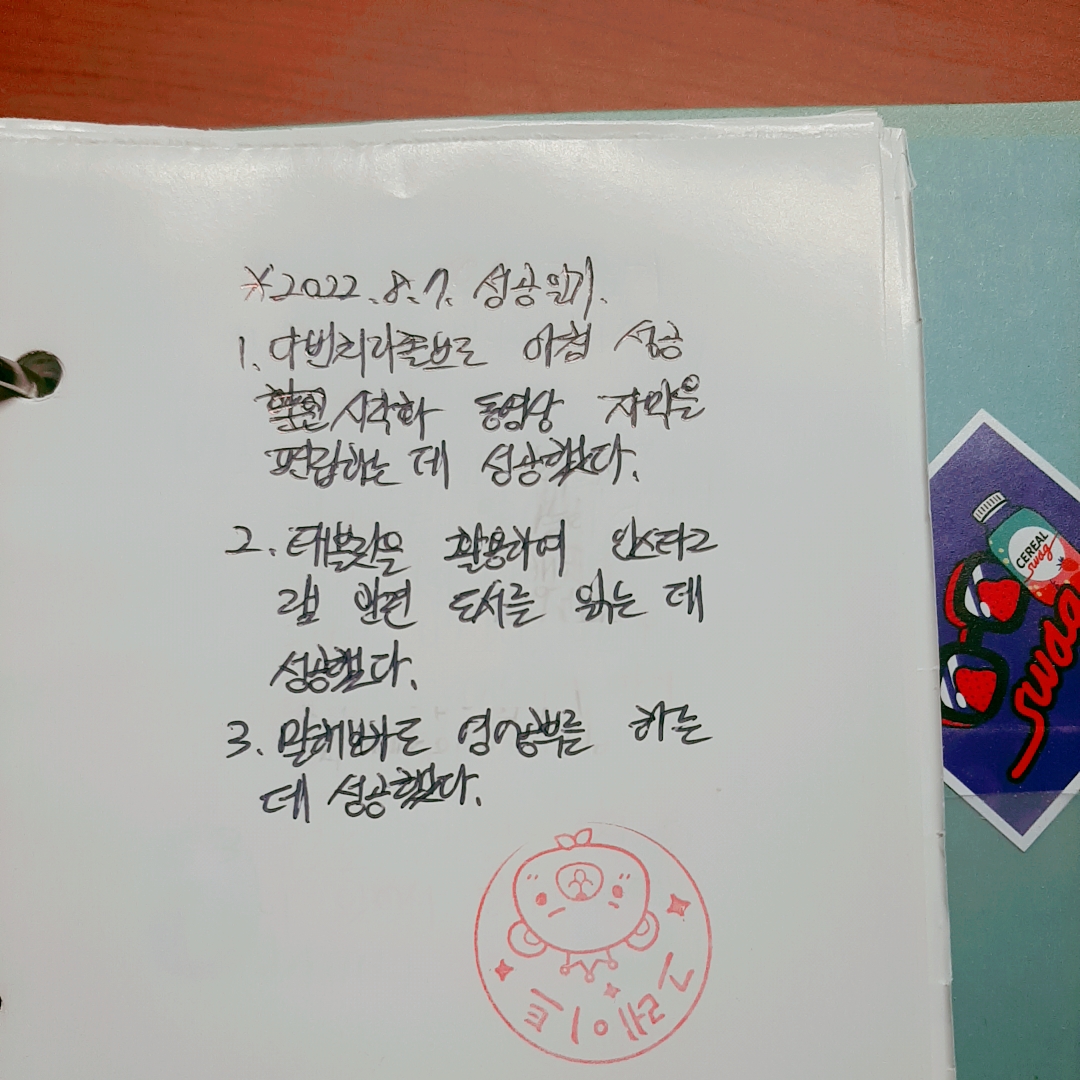 ※2022.8.7. 성공일기.
1. 다빈치리졸브로 아침 성공
확언 시각화 동영상 자막을
편집하는 데 성공했다.
2. 태블릿을 활용하여 인스타그
램 관련 도서를 읽는 데
성공했다.
3. 말해보카로 영어공부를 하는
데 성공했다.
CEREAL
swag
swag